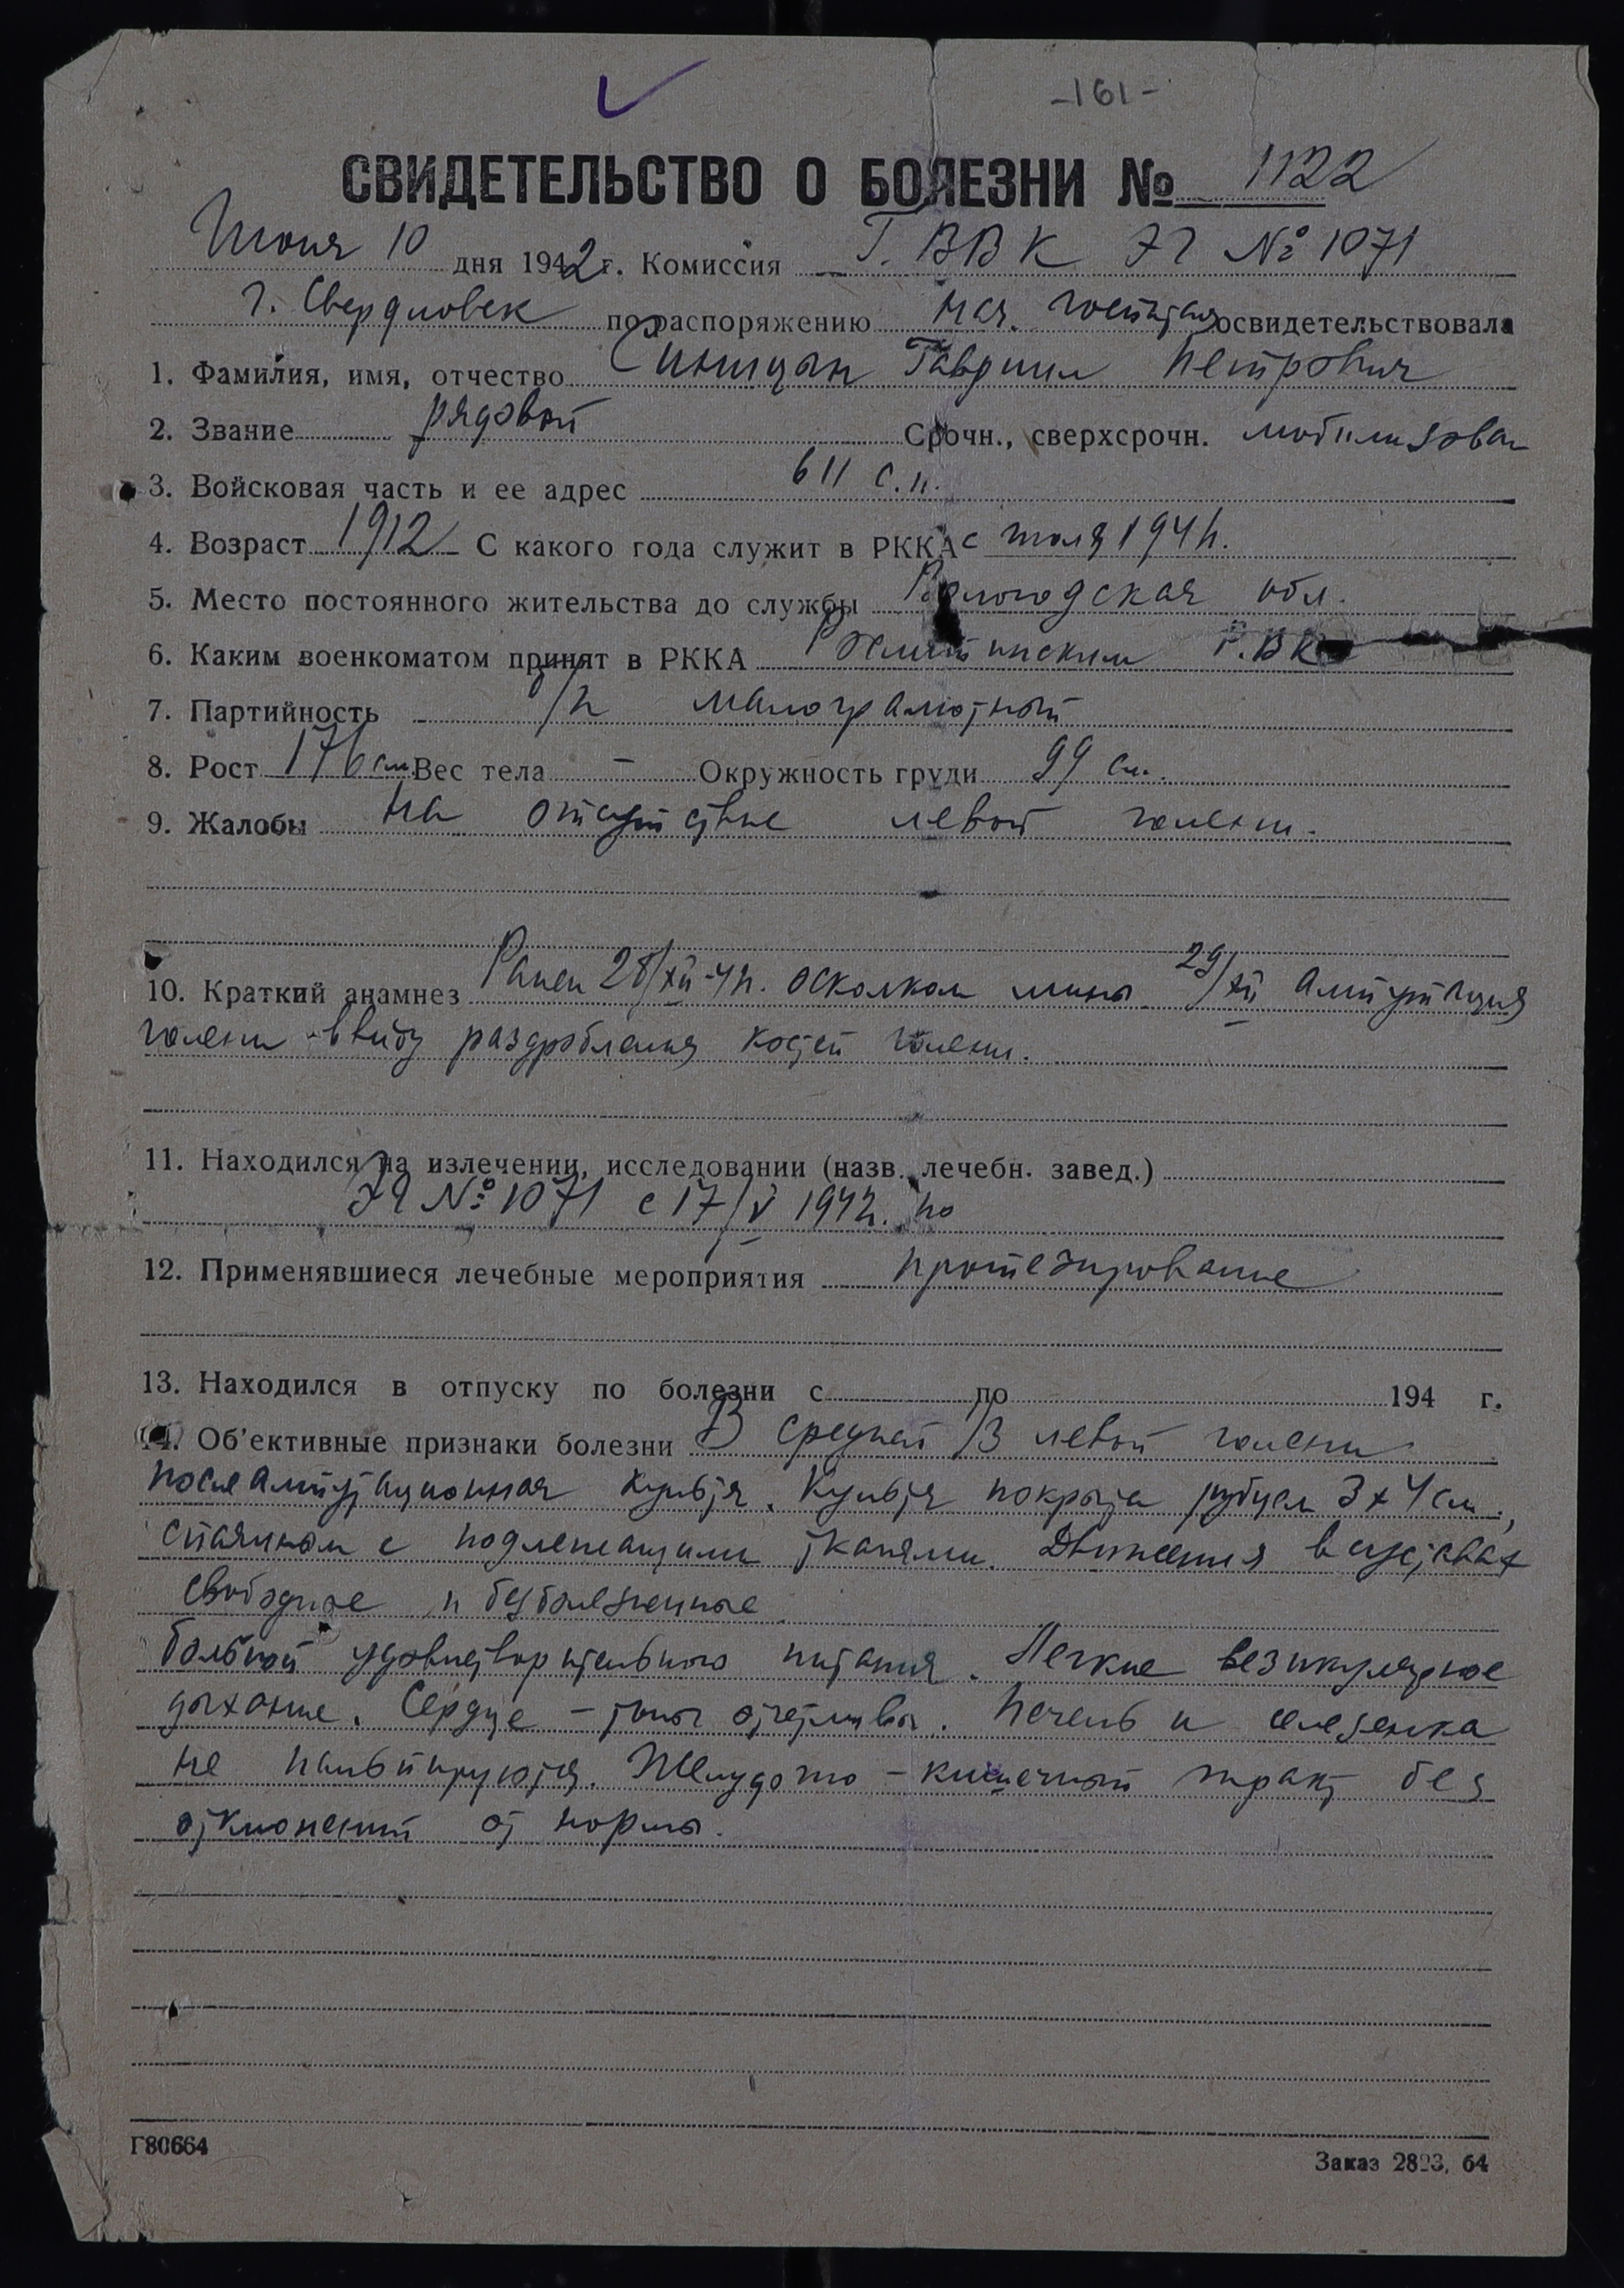 -161-
СВИДЕТЕЛЬСТВО О БОЛЕЗНИ № 1122
Июня 10 дня 1942 г. Комиссия Г. ВВК ЭГ № 1071
г. Свердловск по распоряжению нач. госпиталя освидетельствовала
1. Фамилия, имя, отчество Синицын Гавриил Петрович
2. Звание рядовой Срочн., сверхсрочн. мобилизован
3. Войсковая часть и ее адрес 611 с.п.
4. Возраст 1912 С какого года служит в РККА с июля 1941г.
5. Место постоянного жительства до службы Вологодская обл.
6. Каким военкоматом принят в РККА Р.В.К.
7. Партийность б/п малограмотный
8. Рост 176 см. Вес тела – Окружность груди 99 см.
9. Жалобы На отсутствие левой голени.
10. Краткий анамнез Ранен 28/XII-41г. осколком мины. 29/XII ампутация
голени ввиду раздробления костей голени.
11. Находился на излечении, исследовании (назв. лечебн. завед.)
ЭГ № 1071 с 17/V 1942г. по
12. Применявшиеся лечебные мероприятия протезирование
13. Находился в отпуску по болезни с по 194 г.
14. Об'ективные признаки болезни В средней /3 левой голени
послеампутационная культя. Культя покрыта рубцом 3х4 см.,
спаянным с подлежащими тканями. Движения в суставах
свободные и безболезненные.
больной удовлетворительного питания. Легкие везикулярное
дыхание. Сердце – тоны отчетливы. Печень и селезенка
не пальпируются. Желудочно-кишечный тракт без
отклонений от нормы.
Г80664
Заказ 2893, 64